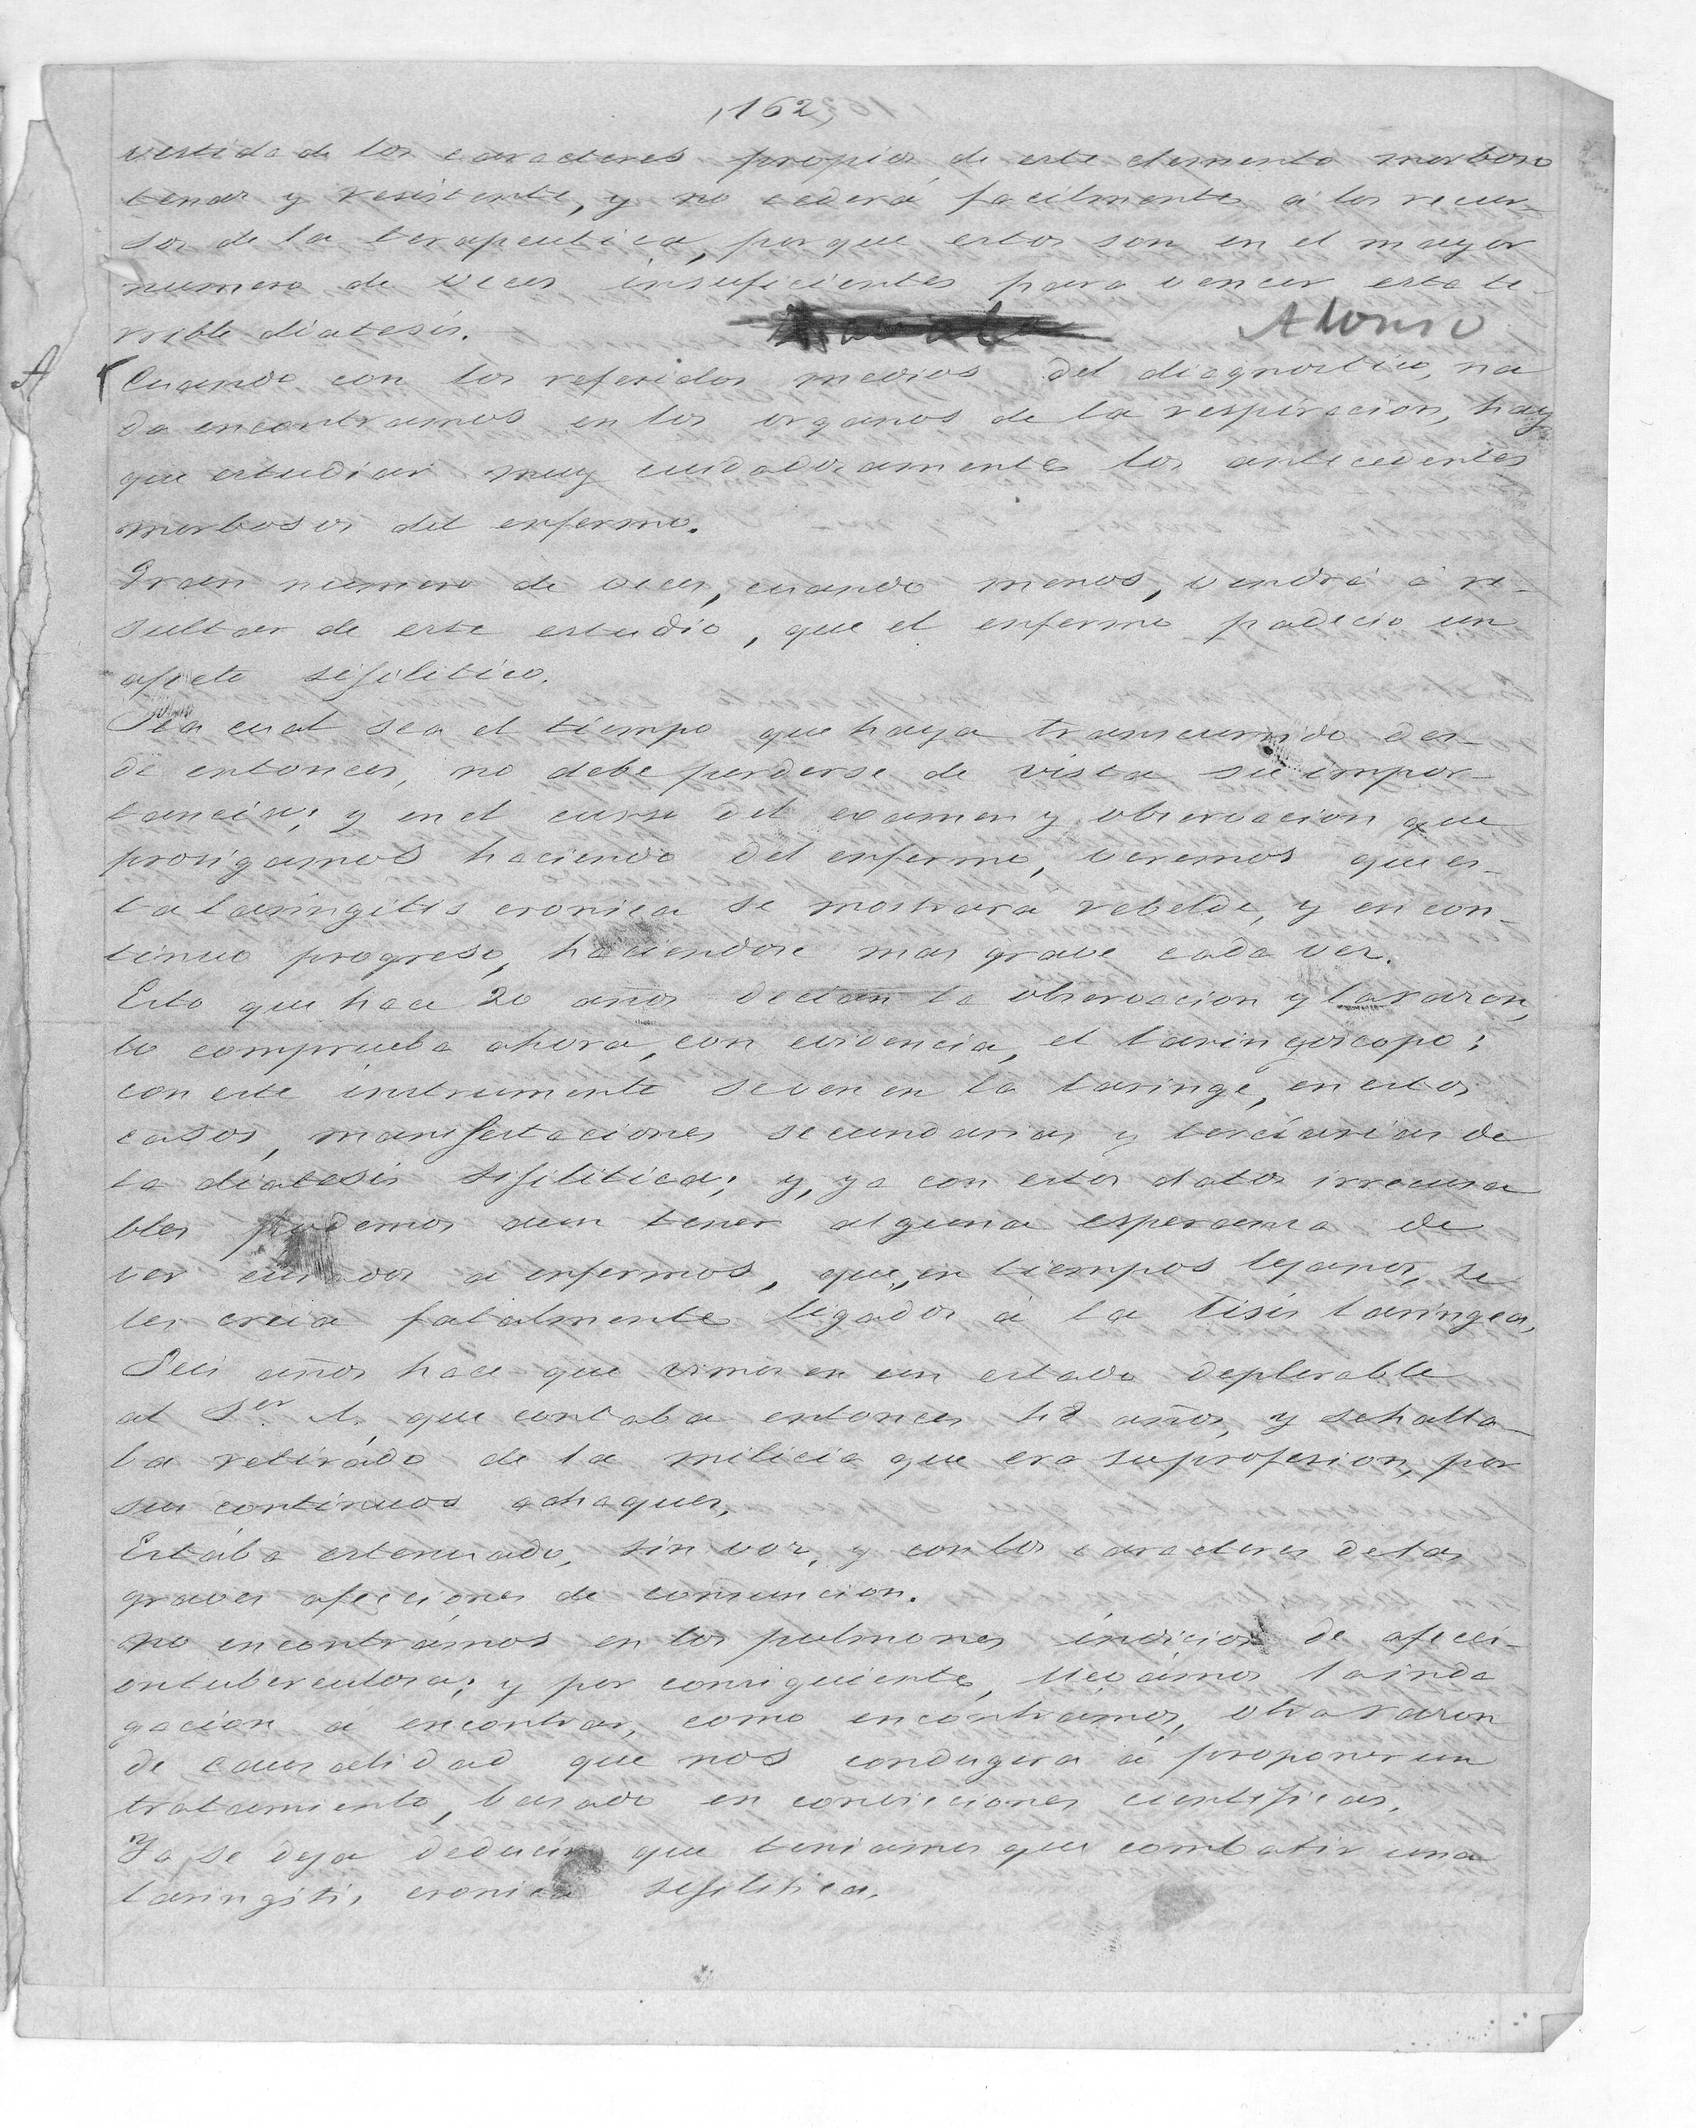 ,162,
vestida de los caracteres propios de este elemento morboso
tenaz y resistente, y no cederá facilmente á los recur-
sos de la terapeutica, porque estos son en el mayor
numero de veces insuficientes para vencer esta te-
rrible diatesis.
Alonso
A
Cuando con los referidos medios del diagnostico, na
da encontramos en los organos de la respiracion, hay
que estudiar muy cuidadosamente los antecedentes
morbosos del enfermo.
Gran numero de veces, cuando menos, vendrá á re-
sultar de este estudio, que el enfermo padecio un
afecto sifilitico.
Sea cual sea el tiempo que haya transcurrido des-
de entonces, no debe perderse de vista su impor-
tancia; y en el curso del examen y observacion que
prosigamos haciendo del enfermo, veremos que es-
ta laringitis cronica se mostrara rebelde, y en con-
tinuo progreso, haciendose mas grave cada vez.
Esto que hace 20 años decian la observacion y la razon,
lo comprueba ahora, con evidencia, el laringoscopo;
con este instrumento se ven en la laringe, en estos
casos, manifestaciones secundarias y terciarias de
la diatesis sifilitica; y, ya con estos datos irrecusa
bles podemos aun tener alguna esperanza de
ver curados a enfermos, que, en tiempos lejanos, se
les creia fatalmente ligados á la tisis laringea.
Seis años hace que vimos en un estado deplorable
al Sor A. que contaba entonces 48 años, y se halla-
ba retirado de la milicia que era su profesion, por
sus continuos achaques.
Estába estenuado, sin voz, y con los caracteres de las
graves afecciones de consuncion.
No encontrámos en los pulmones indicios de afecci-
on tuberculosa; y por consiguiente, llevámos la inda
gacion á encontrar, como encontrámos, otra razon
de causalidad que nos condugera á proponer un
tratamiento, basado en convicciones cientificas.
Ya se deja deducir que teniamos que combatir una
laringitis cronica sifilitica.